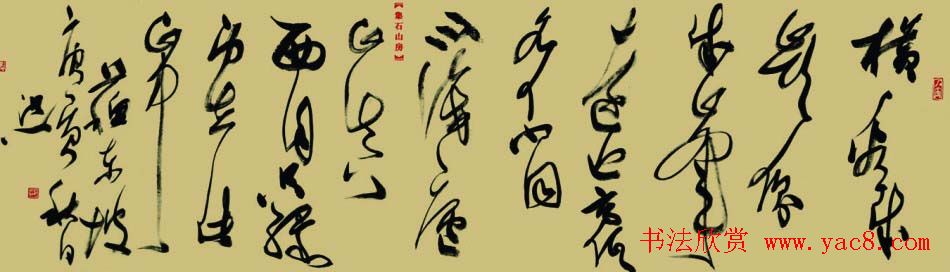 横看成
岭侧
成峰
远近高低
各不同
不识庐
山真
面目只缘
身在此
山中
苏东坡
庚寅秋日
【集石山房】
书法欣赏 www.yac8.com